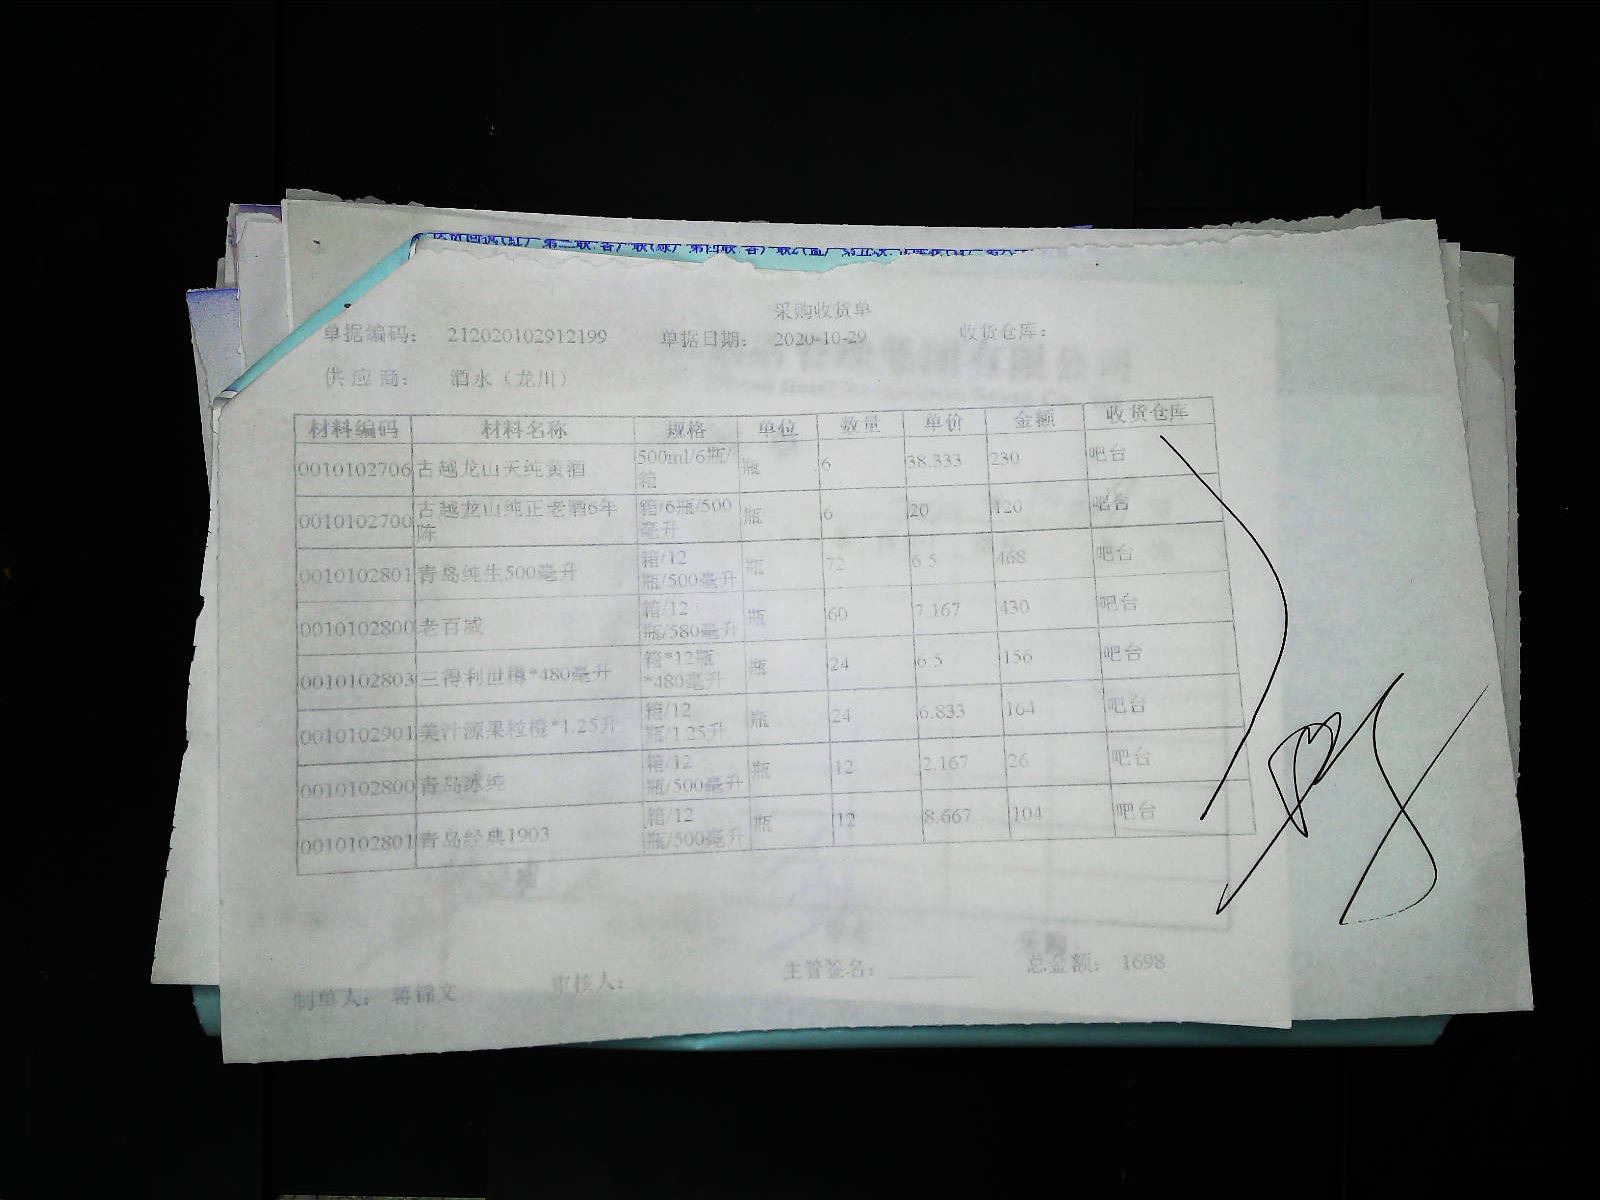 采购收货单
单据编码: 212020102912199 单据日期: 2020-10-29 收货仓库:
供应商: 酒水（龙川）
材料编码 材料名称 规格 单位 数量 单价 金额 收货仓库
0010102706 古越龙山天纯黄酒 500ml/6瓶/箱 瓶 6 38.333 230 吧台
0010102700 古越龙山纯正老酒6年陈 箱/6瓶/500毫升 瓶 6 20 120 吧台
0010102801 青岛纯生500毫升 箱/12瓶/500毫升 瓶 72 6.5 468 吧台
0010102800 老百威 箱/12瓶/580毫升 瓶 60 7.167 430 吧台
0010102803 三得利世樽*480毫升 箱*12瓶*480毫升 瓶 24 6.5 156 吧台
0010102901 美汁源果粒橙*1.25升 箱/12瓶/1.25升 瓶 24 6.833 164 吧台
0010102800 青岛冰纯 箱/12瓶/500毫升 瓶 12 2.167 26 吧台
0010102801 青岛经典1903 箱/12瓶/500毫升 瓶 12 8.667 104 吧台
制单人: 蒋锦文 审核人: 主管签名: 总金额: 1698